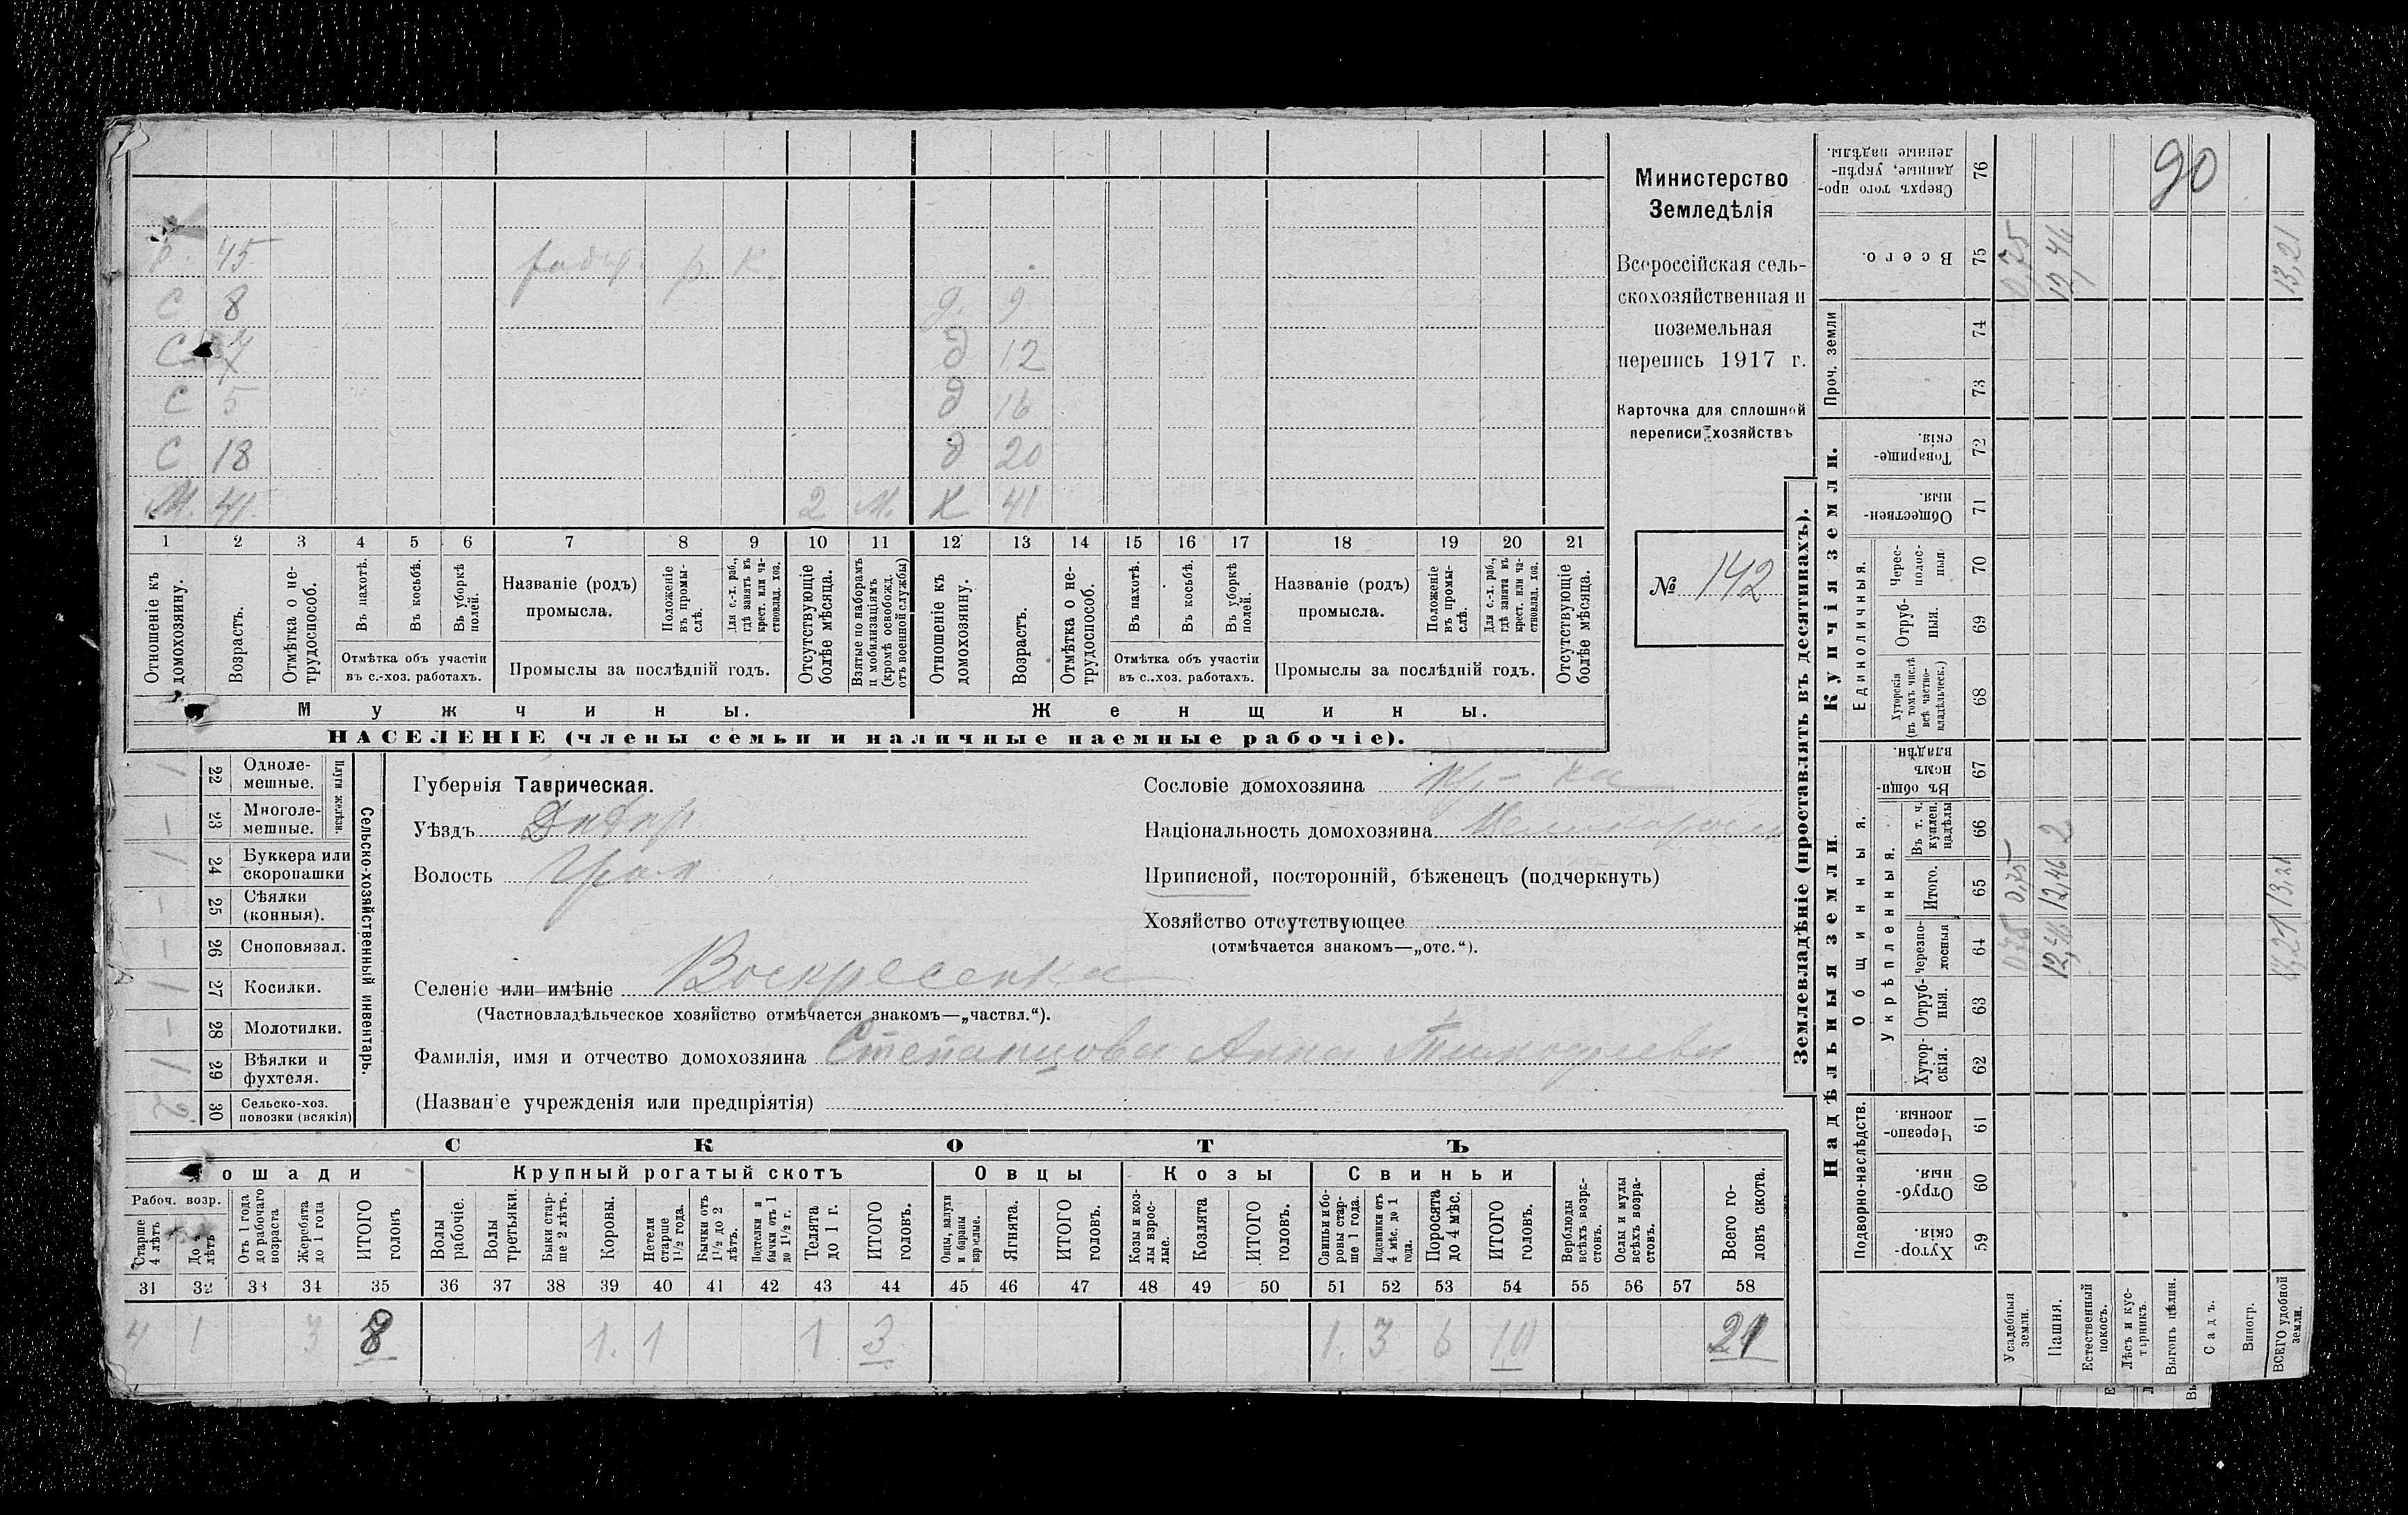 90
Министерство
Земледѣлія
Всероссійская сель-
скохозяйственная и
поземельная
перепись 1917 г.
Карточка для сплошной
переписи хозяйствъ
№ 142
45
С 8 9
С 7 д 12
С 5 д 16
С 18 д 20
М. 41 2 М. Х 41
1 2 3 4 5 6 7 8 9 10 11 12 13 14 15 16 17 18 19 20 21
Отношеніе къ домохозяину.
Возрастъ.
Отмѣтка о не-трудоспособ.
Въ пахотѣ.
Въ косьбѣ.
Въ уборкѣ полей.
Отмѣтка объ участіи
въ с.-хоз. работахъ.
Названіе (родъ)
промысла.
Положеніе въ промы-слѣ.
Для с.-х. раб., гдѣ занятъ въ крест. или ча-стновлад. хоз.
Промыслы за послѣдній годъ.
Отсутствующіе болѣе мѣсяца.
Взятые по наборамъ и мобилизаціямъ (кромѣ освобожд. отъ военной службы)
Отношеніе къ домохозяину.
Возрастъ.
Отмѣтка о не-трудоспособ.
Въ пахотѣ.
Въ косьбѣ.
Въ уборкѣ полей.
Отмѣтка объ участіи
въ с.-хоз. работахъ.
Названіе (родъ)
промысла.
Положеніе въ промы-слѣ.
Для с.-х. раб., гдѣ занята въ крест. или ча-стновлад. хоз.
Промыслы за послѣдній годъ.
Отсутствующіе болѣе мѣсяца.
Мужчины. Женщины.
НАСЕЛЕНІЕ (члены семьи и наличные наемные рабочіе).
Сельско-хозяйственный инвентарь.
Плуги желѣзн.
1 22 Одноле-мешные.
— 23 Многоле-мешные.
1 24 Буккера или скоропашки
— 25 Сѣялки (конныя).
— 26 Сноповязал.
1 27 Косилки.
— 28 Молотилки.
1 29 Вѣялки и фухтеля.
2 30 Сельско-хоз. повозки (всякія)
Губернія Таврическая.
Уѣздъ Днѣпр.
Волость
Селеніе или имѣніе Воскресенка
(Частновладѣльческое хозяйство отмѣчается знакомъ—„частвл.“).
Фамилія, имя и отчество домохозяина Степанцова Анна Тимофеева
(Названіе учрежденія или предпріятія)
Сословіе домохозяина кр-ка
Національность домохозяина Великоросс
Приписной, посторонній, бѣженецъ (подчеркнуть)
Хозяйство отсутствующее
(отмѣчается знакомъ—„отс.“).
СКОТЪ
Лошади Крупный рогатый скотъ Овцы Козы Свиньи
Рабоч. возр.
Старше 4 лѣтъ
До 4 лѣтъ
Отъ 1 года до рабочаго возраста
Жеребята до 1 года
ИТОГО головъ
Волы рабочіе.
Волы третьяки.
Быки стар-ше 2 лѣтъ.
Коровы.
Нетели старше 1½ года.
Бычки отъ 1½ до 2 лѣтъ.
Подтелки и бычки отъ 1 до 1½ г.
Телята до 1 г.
ИТОГО головъ.
Овцы, валухи и бараны взрослые.
Ягнята.
ИТОГО головъ.
Козы и коз-лы взрос-лые.
Козлята
ИТОГО головъ.
Свиньи и бо-ровы стар-ше 1 года.
Подсвинки отъ 4 мѣс. до 1 года.
Поросята до 4 мѣс.
ИТОГО головъ.
Верблюды всѣхъ возра-стовъ.
Ослы и мулы всѣхъ возра-стовъ.
Всего го-ловъ скота.
31 32 33 34 35 36 37 38 39 40 41 42 43 44 45 46 47 48 49 50 51 52 53 54 55 56 57 58
4 1 3 8 1. 1 1 3 1. 3 6 10 21
Землевладѣніе (проставлять въ десятинахъ).
Надѣльныя земли. Купчія земли.
Подворно-наслѣдств.
Общинныя.
Укрѣпленныя.
Единоличныя.
Проч. земли
Хутор-скія. 59
Отруб-ныя. 60
Черезпо-лосныя. 61
Хутор-скія. 62
Отруб-ныя. 63
Черезпо-лосныя 64
Итого. 65
Въ т. ч. куплен. надѣлы 66
Въ общи-номъ владѣн. 67
Хуторскія (въ томъ числѣ всѣ частно-владѣльческ.) 68
Отруб-ныя. 69
Черес-полос-ныя 70
Обществен-ныя. 71
Товарище-скія. 72
73
74
Всего. 75
Сверхъ того про-данные, укрѣп-ленные надѣлы. 76
Усадебныя земли. 0,75 0,75 0,75
Пашня. 12,46 12,46 2 12,46
Естественный покосъ.
Лѣсъ и кус-тарникъ.
Выгонъ цѣлин.
Садъ.
Виногр.
ВСЕГО удобной земли. 13,21 13,21 13,21